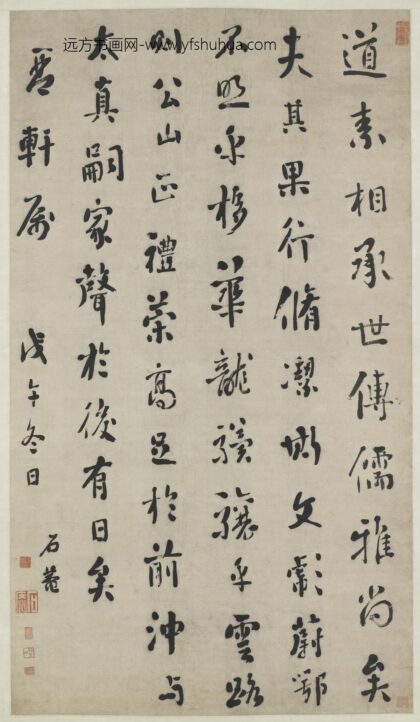 远方书画网-www.yfshuhua.com
道素相承世傳儒雅尚矣
夫其果行脩潔斯文彪蔚鄂
不照乎棣華龍驥驤乎雲路
則公山正禮策高足於前沖与
太真嗣家聲於後有日矣
軒属 戊午冬日
石菴